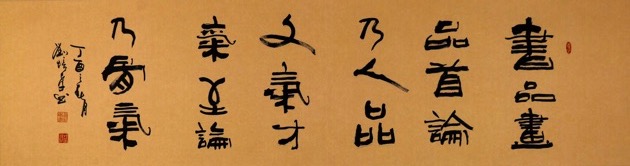 書品畫
品首論
乃人品
文氣才
氣至論
乃骨氣
丁酉之秋月